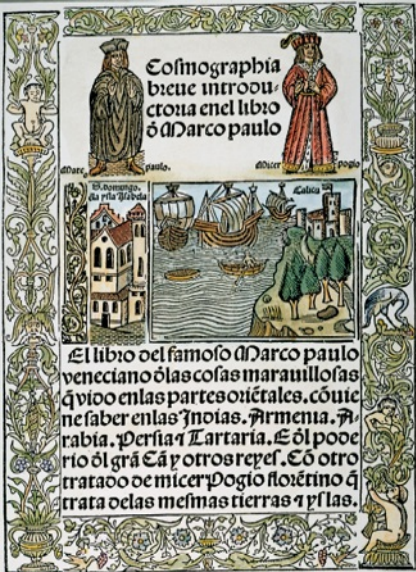 Cosmographia
breue introdu-
ctoria enel libro
ð Marco paulo
Marc paulo.
Micer pogio
S. domingo.
ẽla ysla Ysabela
Calicu
El libro del famoso Marco paulo
veneciano ðlas cosas marauillosas
q̃ vido enlas partes oriẽtales. cõuie
ne saber enlas Indias. Armenia. A-
rabia. Persia ⁊ Tartaria. E ðl pode
rio ðl grã Cã y otros reyes. Cõ otro
tratado de micer Pogio florẽtino q̃
trata delas mesmas tierras ⁊ yslas.